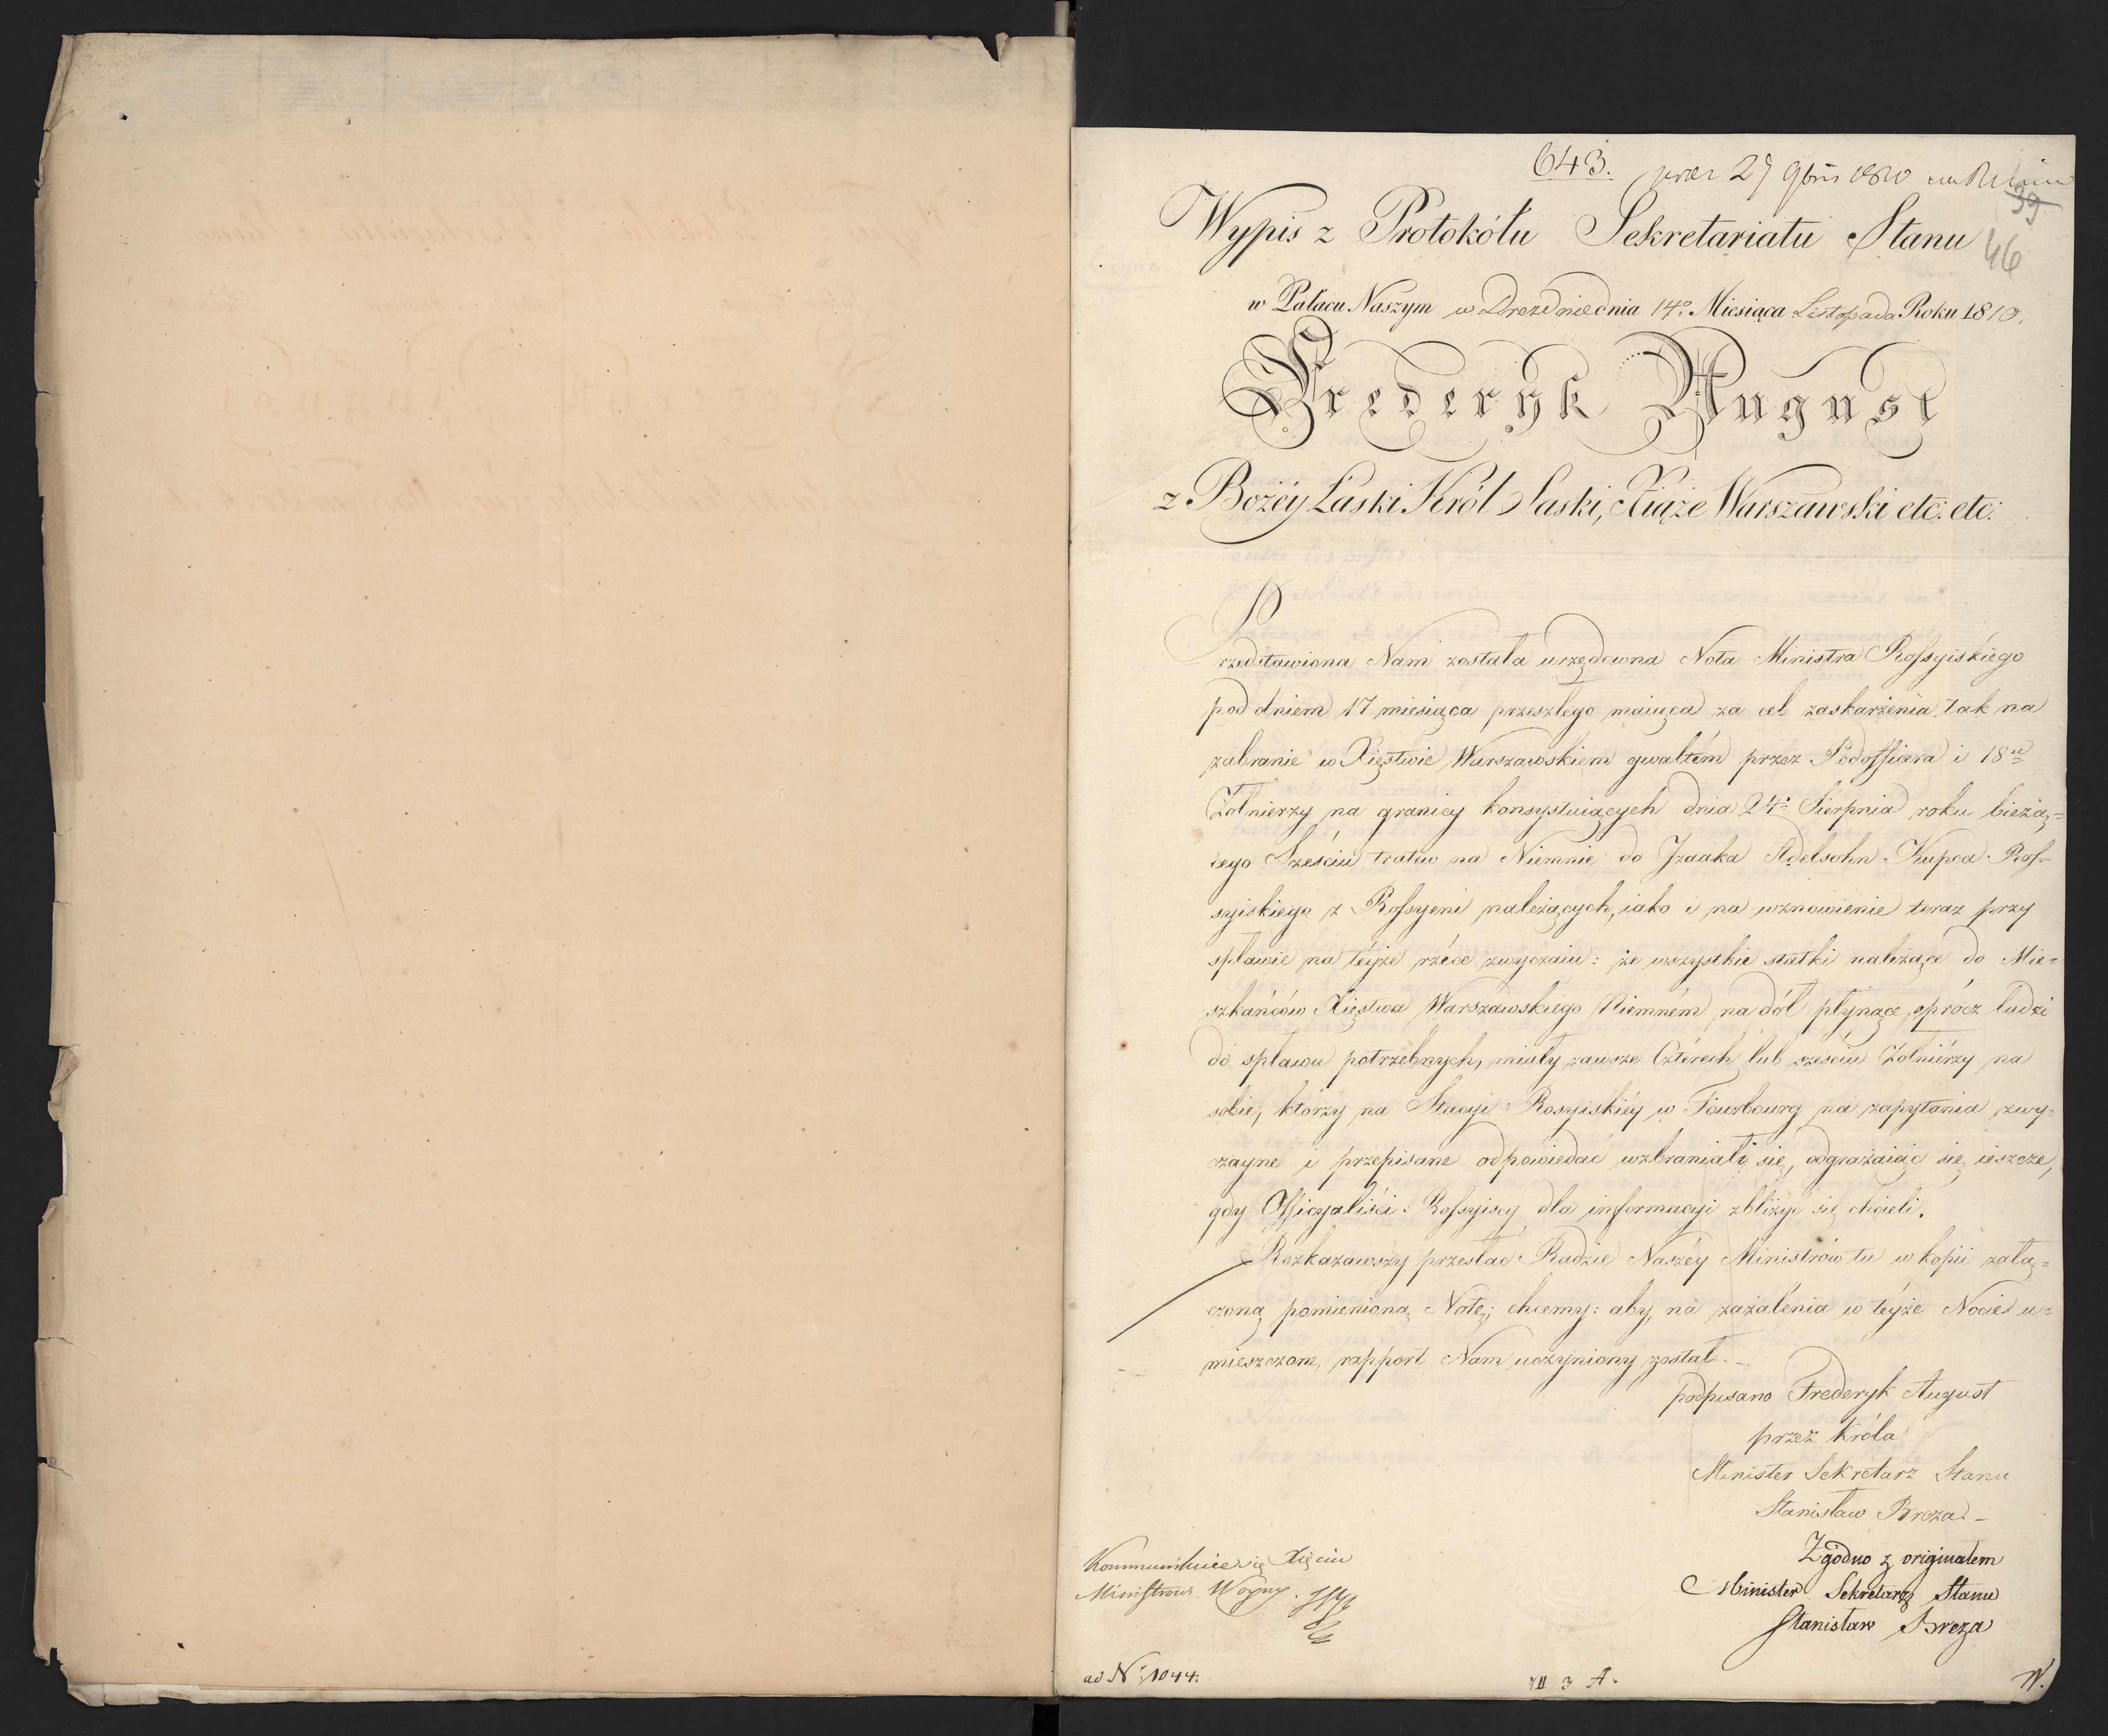 643.
27 9bris 1810
39
46
Wypis z Protokółu Sekretariatu Stanu
w Pałacu Naszym w Dreznie dnia 14º Miesiąca Listopada Roku 1810.
Frederyk August
z Bożéy Łaski Król Saski, Xiąże Warszawski etc: etc:
Przedstawiona Nam została urzędowna Nota Ministra Rossyiskiego
pod dniem 17 miesiąca przeszłego maiąca za cel zaskarżenia tak na
zabranie w Xięstwie Warszawskiem gwałtém przez Podofficera i 18u
Żołnierzy na granicy konsystuiących dnia 24º Sierpnia roku bieżą=
cego Sześciu tratew na Niemnie do Izaaka Adelsohn Kupca Ros-
syiskiego z Rossyeni należących, iako i na wznowienie teraz przy
spławie na téyże rzéce zwyczaiu: że wszystkie statki należące do Mie=
szkańców Xięstwa Warszawskiego Niemném na dół płynące, oprócz ludzi
do spławu potrzebnych, miały zawsze Cztérech lub sześciu Żołniérzy na
sobie, którzy na Stacyi Rosyiskiéy w Fourbourg na zapytania zwy=
czayne i przepisane odpowiedać wzbraniali się, odgrażaiąc się ieszcze,
gdy Officyaliści Rossyiscy dla informacyi zbliżyć się chcieli.
Rozkazawszy przesłać Radzie Naszéy Ministrów tu w kopii załą=
czoną pomienioną Notę; chcemy: aby, na zażalenia w téyże Nocie u=
mieszczone, rapport Nam uczyniony został. -
podpisano Frederyk August
przez Króla
Minister Sekretarz Stanu
Stanisław Breza -
Zgodno z originałem
Minister Sekretarz Stanu
Stanisław Breza
Kommunikuie się Xięciu
Ministrowi Woyny.
ad Nº 1044.
VII 3 A.
W.